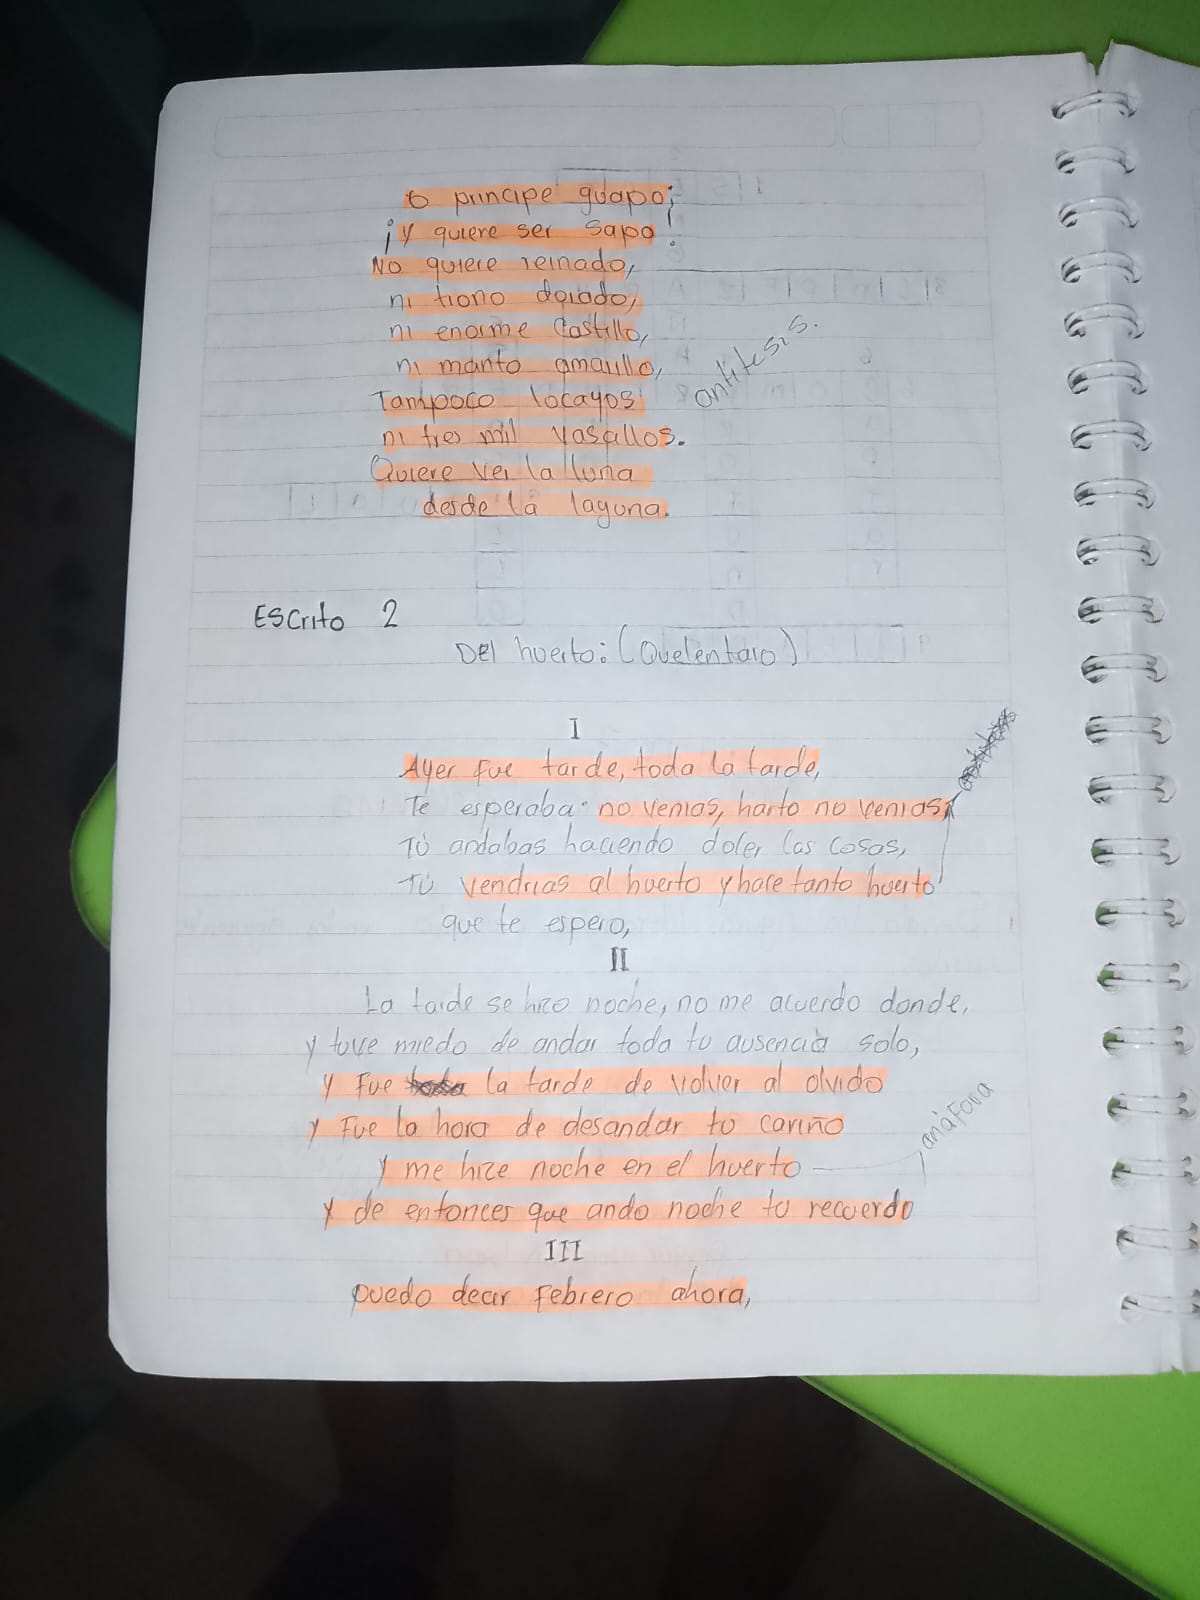 o principe guapo;
¡Y quiere ser sapo!
No quiere reinado,
ni trono dorado,
ni enorme Castillo,
ni manto amarillo,
Tampoco lacayos
ni tres mil vasallos.
Quiere ver la luna
desde la laguna.
antitesis.
Escrito 2
Del huerto: (Quelentaro)
I
Ayer fue tarde, toda la tarde,
Te esperaba no venias, harto no venias,
Tú andabas haciendo doler las cosas,
Tú vendrias al huerto y hace tanto huerto
que te espero,
II
La tarde se hizo noche, no me acuerdo donde,
y tuve miedo de andar toda tu ausencia solo,
y fue la tarde de volver al olvido
y fue la hora de desandar tu cariño
y me hize noche en el huerto
anáfora
y de entonces que ando noche tu recuerdo
III
puedo decir Febrero ahora,